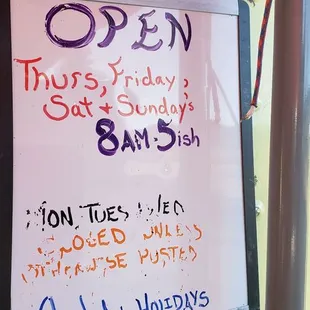 OPEN
Thurs, Friday,
Sat + Sunday's
8AM-5ish
MON, TUES WED
CLOSED UNLESS
OTHERWISE POSTED
HOLIDAYS